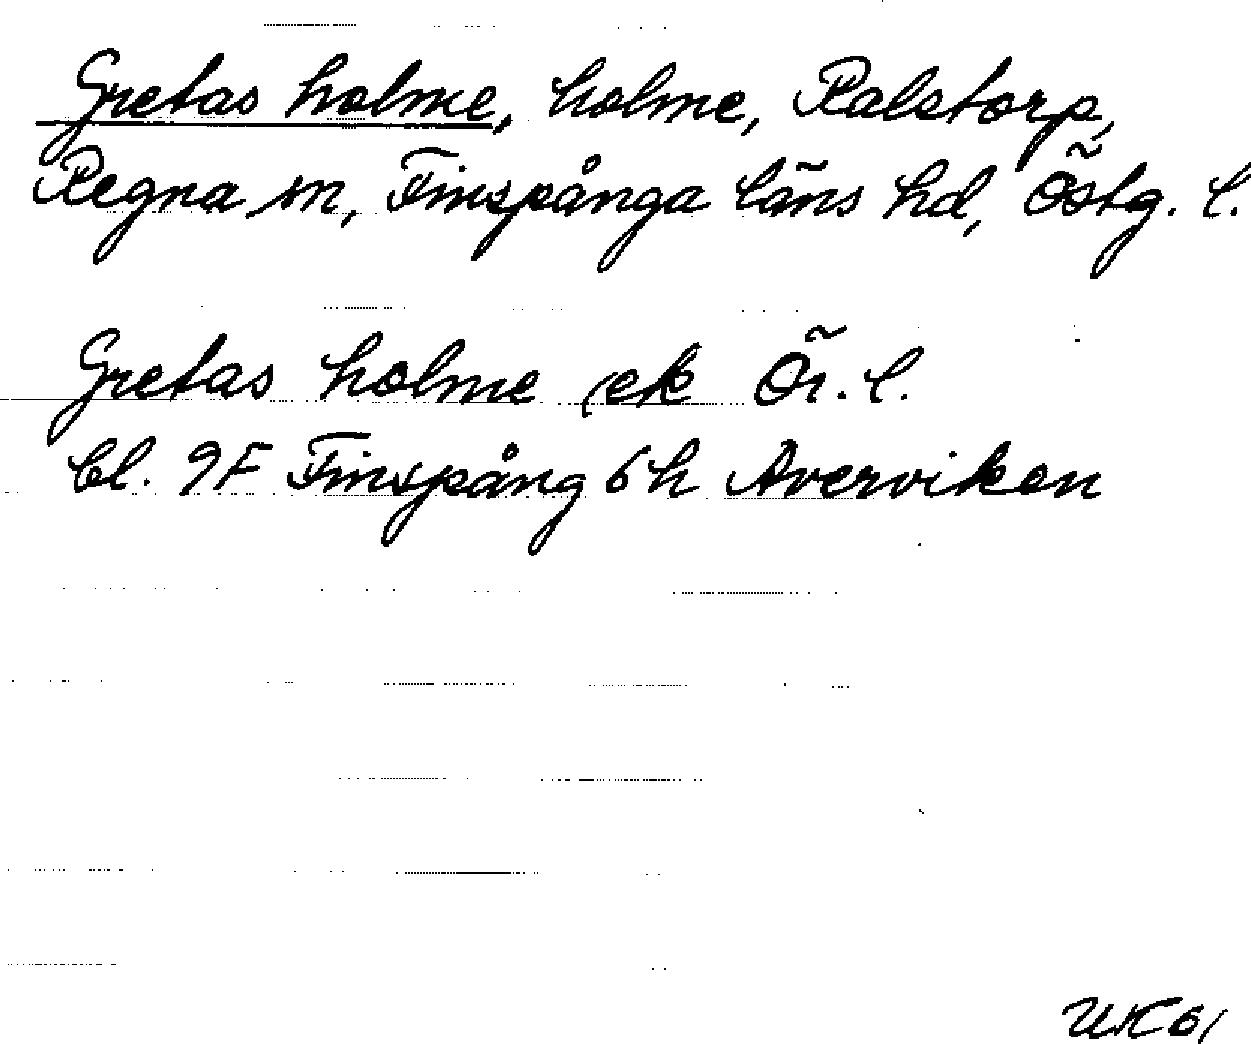 Gretas holme, holme, Ralstorp,
Regna sn, Finspånga läns hd, Östg. l.
Gretas holme (ek Ör. l.
bl. 9F Finspång 6h Averviken
UK61